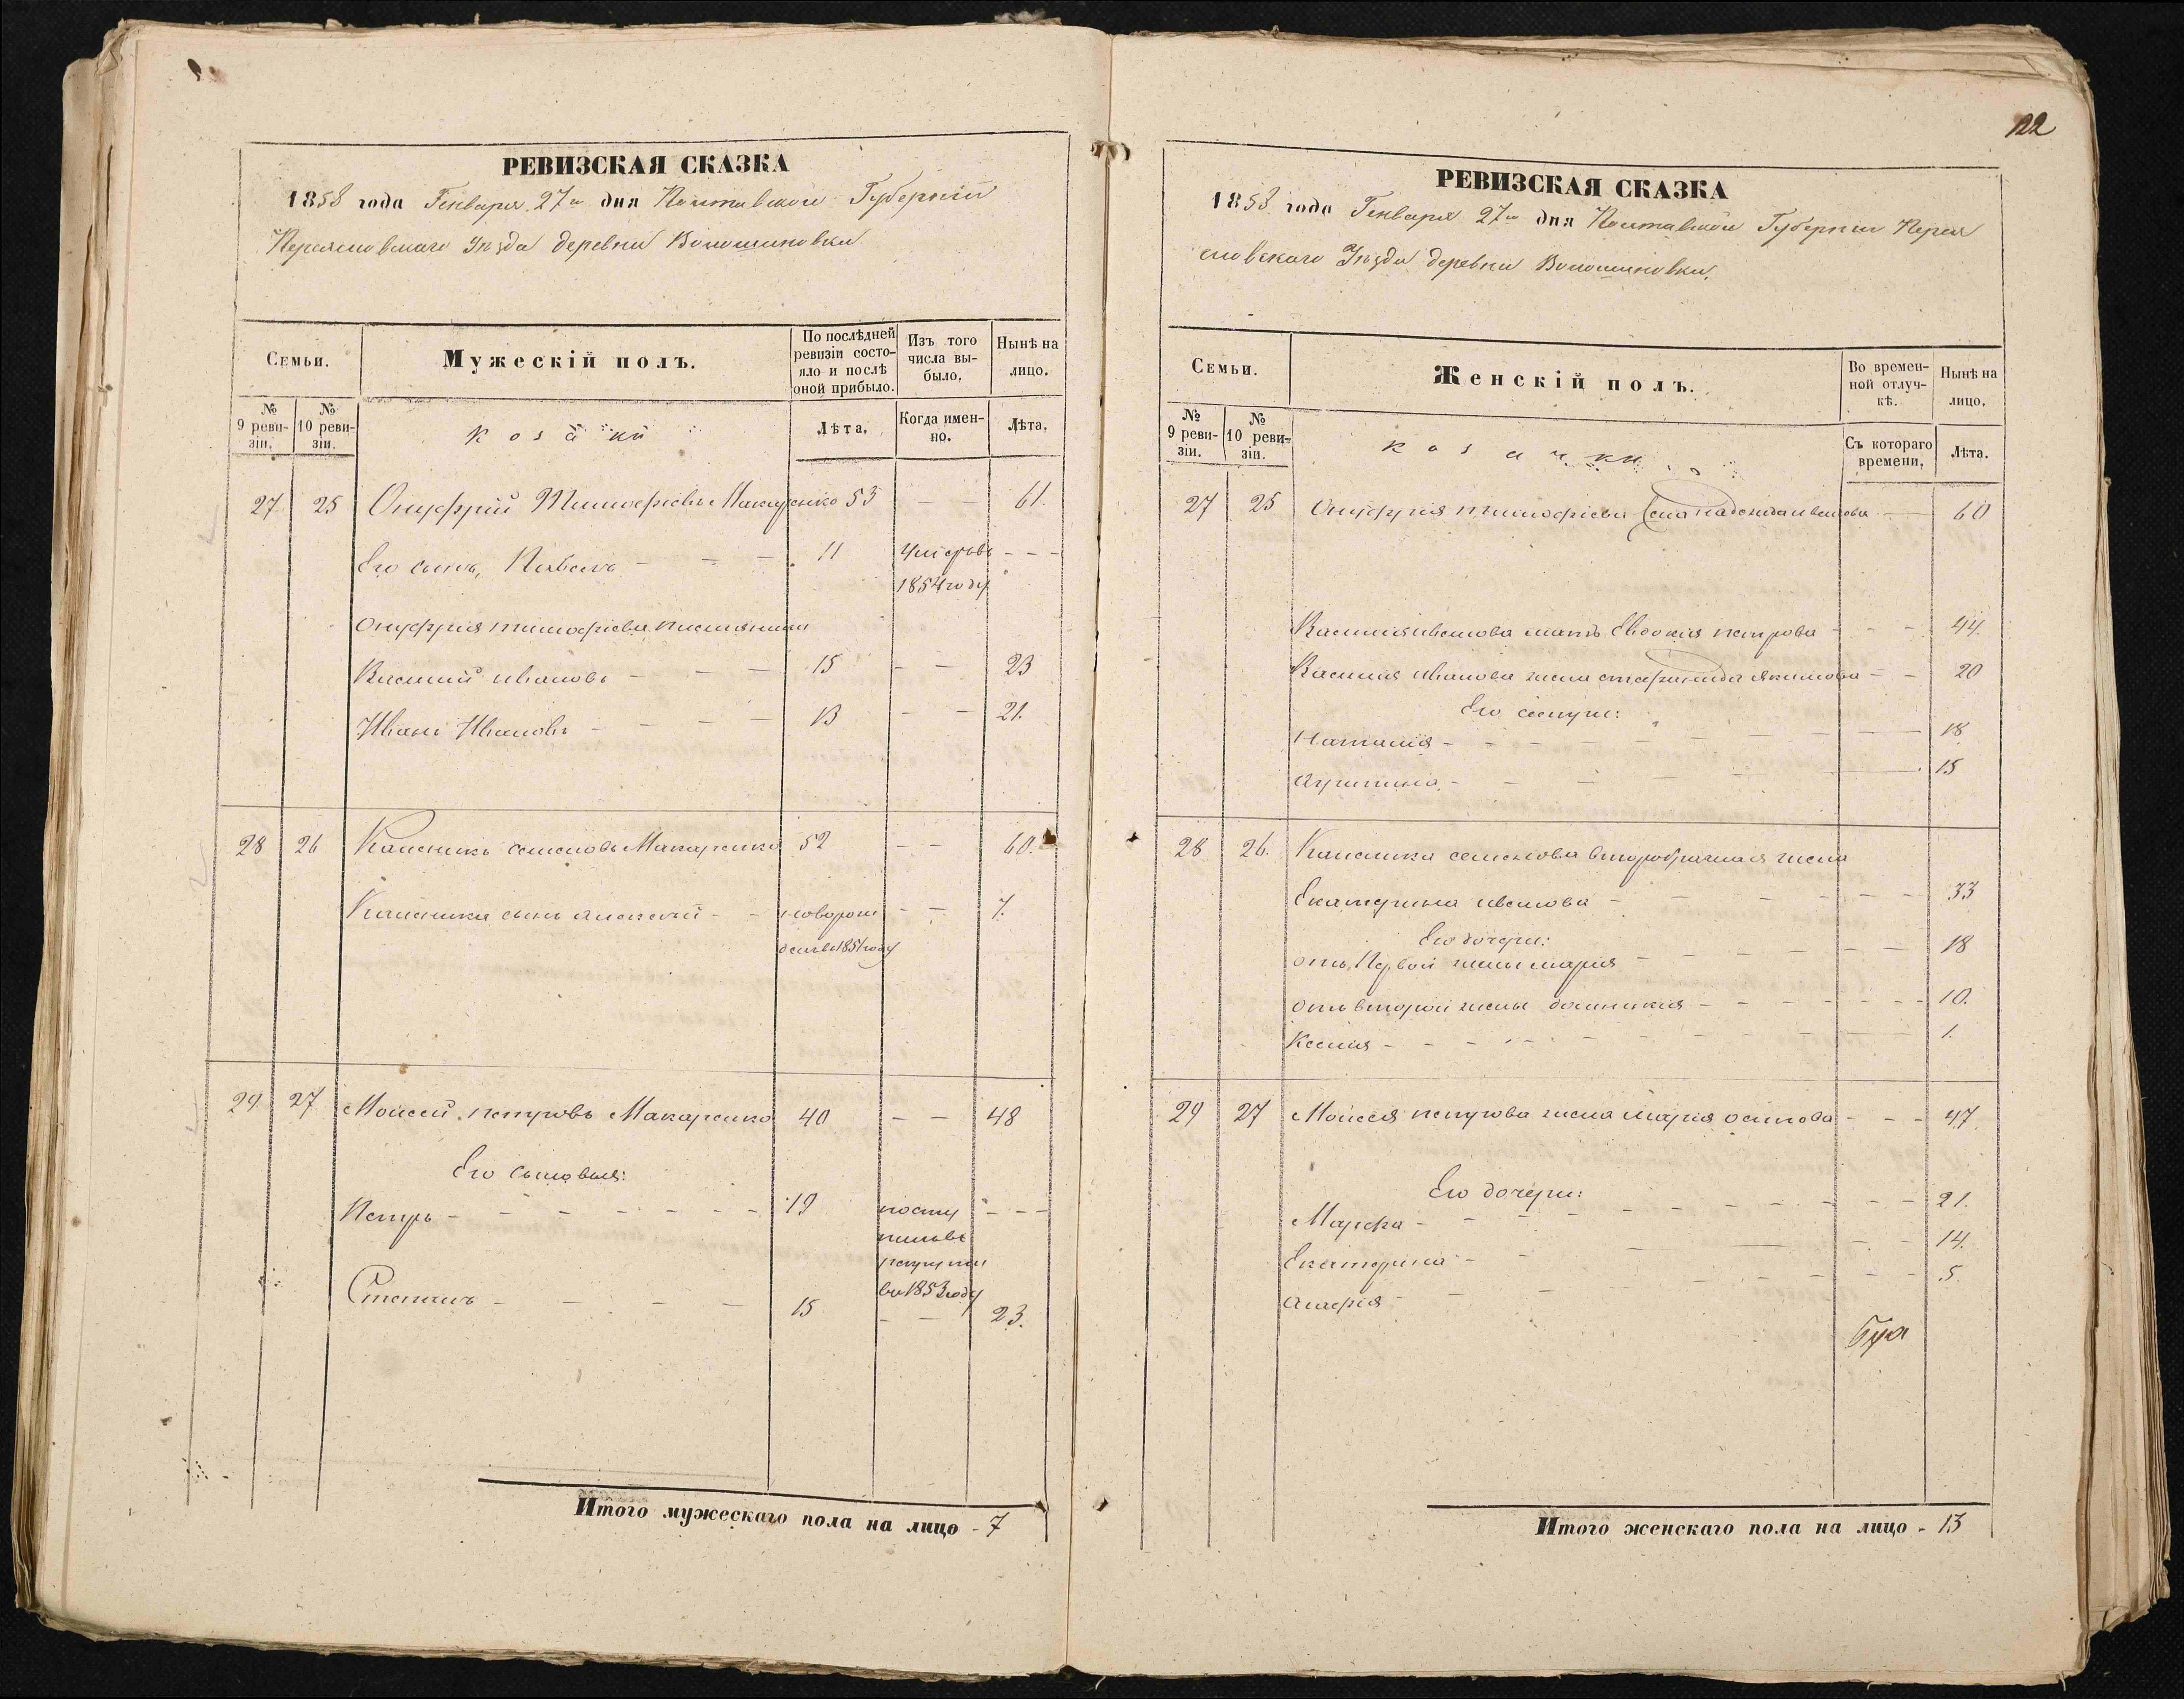 РЕВИЗСКАЯ СКАЗКА
1858 года Генваря 27го дня Полтавской Губерніи
Переяславскаго Уѣзда деревни Волошиновки
Семьи.
Мужескій полъ.
По послѣдней ревизіи состояло и послѣ оной прибыло.
Изъ того числа выбыло.
Нынѣ на лицо.
№ 9 ревизіи.
№ 10 ревизіи.
козаки
Лѣта.
Когда именно.
Лѣта.
27 25 Онуфрій Тимофіевъ Макаренко 53 — — 61.
Его сынъ, Павелъ - — — 11 Умеръ въ - - -
1854 году
Онуфрія тимофіева племянники
Василий ивановъ - — — 15 — — 23
Иванъ Ивановъ - — — — 13 — — 21.
28 26 Калениkъ семеновъ Макаренко 52 — — 60.
Каленика сынъ алексѣй - - новорож — — 7.
денъ въ 1851 году
29 27 Моисей петровъ Макаренко 40 — — 48
Его сыновья:
Петръ - - - - - - - 19 посту - - -
пилъ въ
рекруты
въ 1853 году
Степанъ - — — — 15 — — 23.
Итого мужескаго пола на лицо - 7
122
РЕВИЗСКАЯ СКАЗКА
1858 года Генваря 27го дня Полтавской Губерніи Перея
славскаго Уѣзда деревни Волошиновки.
Семьи.
Женскій полъ.
Во временной отлучкѣ.
Нынѣ на лицо.
№ 9 ревизіи.
№ 10 ревизіи.
козачки
Съ котораго времени.
Лѣта.
27 25 Онуфрія тимофіева жена надежда иванова — 60
Василія иванова мать Евдокія петрова - - - 44.
Василия иванова жена якимова - - 20
Его сестры:
Наталія - - - - - - 18
агрипина - - — — 15
28 26. Каленика семенова второбрачная жена
Екатерина иванова - - - - 33
Его дочери:
отъ Первой жены марія - - - 18
отъ второй жены домникия - - - 10.
Ксения - - - - - - 1.
29 27 Моисея петрова жена марія осипова - - - 47.
Его дочери:
Марфа - - - - - - - 21.
Екатерина - - - — 14.
- - - - 5.
Итого женскаго пола на лицо - 13